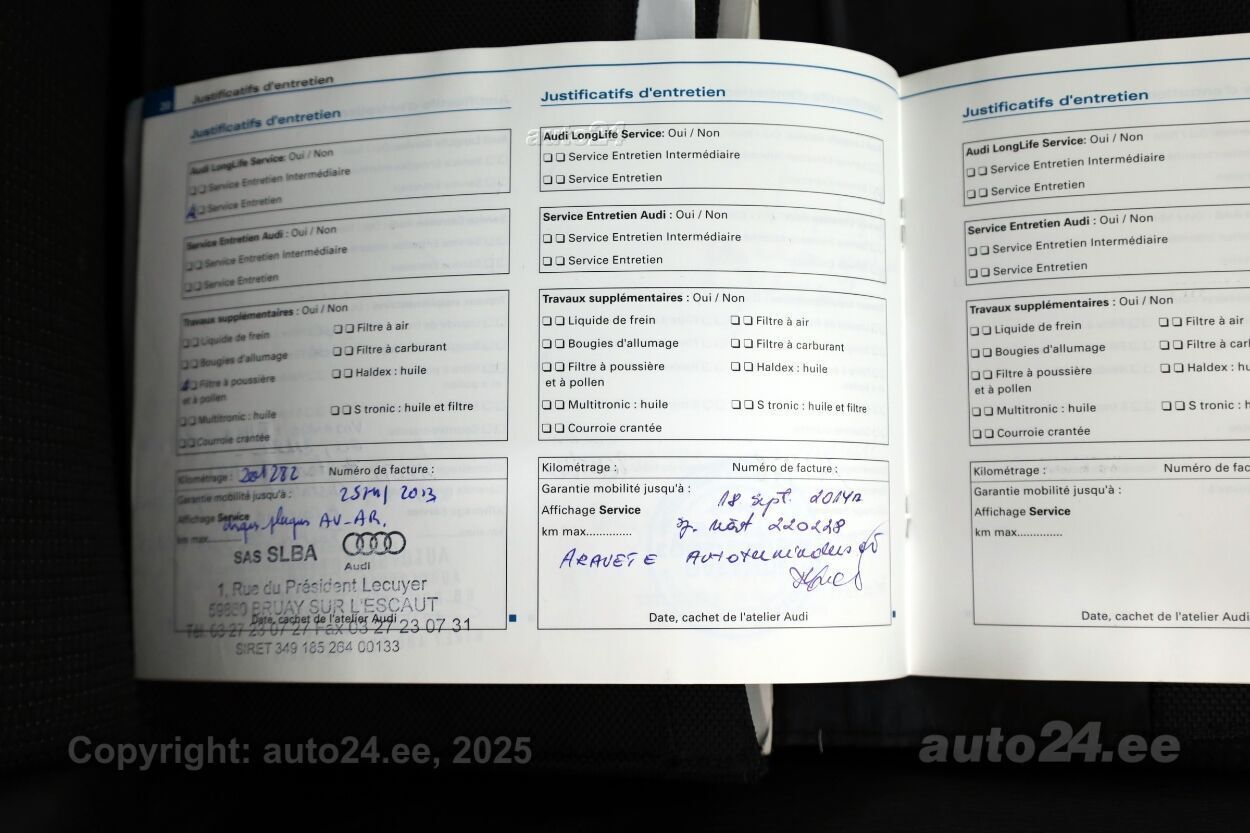 20 Justificatifs d'entretien
Justificatifs d'entretien
Audi LongLife Service: Oui / Non
❑ ❑ Service Entretien Intermédiaire
❑ Service Entretien
Service Entretien Audi : Oui / Non
❑ ❑ Service Entretien Intermédiaire
❑ ❑ Service Entretien
Travaux supplémentaires : Oui / Non
❑ ❑ Liquide de frein ❑ ❑ Filtre à air
❑ ❑ Bougies d'allumage ❑ ❑ Filtre à carburant
❑ Filtre à poussière ❑ ❑ Haldex : huile
et à pollen
❑ ❑ Multitronic : huile ❑ ❑ S tronic : huile et filtre
❑ ❑ Courroie crantée
Kilométrage : 201282 Numéro de facture :
Garantie mobilité jusqu'à : 2013
Affichage Service
AV-AR.
km max.......
SAS SLBA
Audi
1, Rue du Président Lecuyer
59860 BRUAY SUR L'ESCAUT
Date, cachet de l'atelier Audi
Tél. 03 27 23 07 27 Fax 03 27 23 07 31
SIRET 349 185 264 00133
Justificatifs d'entretien
auto24
Audi LongLife Service: Oui / Non
❑ ❑ Service Entretien Intermédiaire
❑ ❑ Service Entretien
Service Entretien Audi : Oui / Non
❑ ❑ Service Entretien Intermédiaire
❑ ❑ Service Entretien
Travaux supplémentaires : Oui / Non
❑ ❑ Liquide de frein ❑ ❑ Filtre à air
❑ ❑ Bougies d'allumage ❑ ❑ Filtre à carburant
❑ ❑ Filtre à poussière ❑ ❑ Haldex : huile
et à pollen
❑ ❑ Multitronic : huile ❑ ❑ S tronic : huile et filtre
❑ ❑ Courroie crantée
Kilométrage : Numéro de facture :
Garantie mobilité jusqu'à : 18 sept. 2014a
Affichage Service
km max.............. näit 220228
ARAVETE Autoteenindus
Date, cachet de l'atelier Audi
Justificatifs d'entretien
Audi LongLife Service: Oui / Non
❑ ❑ Service Entretien Intermédiaire
❑ ❑ Service Entretien
Service Entretien Audi : Oui / Non
❑ ❑ Service Entretien Intermédiaire
❑ ❑ Service Entretien
Travaux supplémentaires : Oui / Non
❑ ❑ Liquide de frein ❑ ❑ Filtre à air
❑ ❑ Bougies d'allumage ❑ ❑ Filtre à car
❑ ❑ Filtre à poussière ❑ ❑ Haldex : hu
et à pollen
❑ ❑ Multitronic : huile ❑ ❑ S tronic : h
❑ ❑ Courroie crantée
Kilométrage : Numéro de fac
Garantie mobilité jusqu'à :
Affichage Service
km max..............
Date, cachet de l'atelier Audi
Copyright: auto24.ee, 2025
auto24.ee